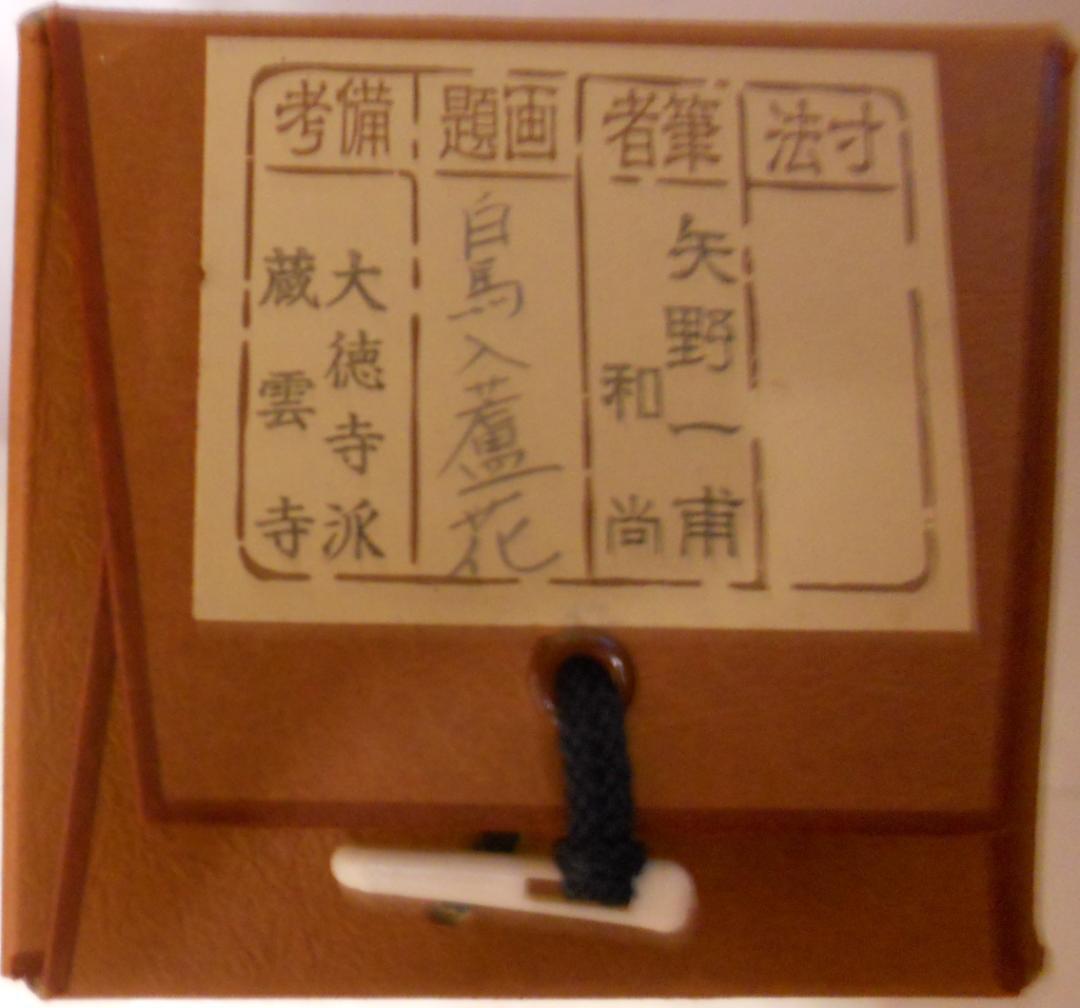 才法
筆者
矢野一甫
和尚
画題
白馬入蘆花
備考
大徳寺派
蔵雲寺